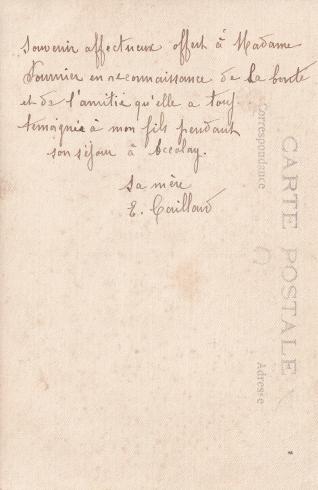 Souvenir affectueux offert à Madame
Fournier en reconnaissance de la bonté
et de l'amitié qu'elle a
témoignée à mon fils pendant
son séjour à Accolay.
Sa mère
E. Caillaud
CARTE POSTALE
Correspondance
Adresse